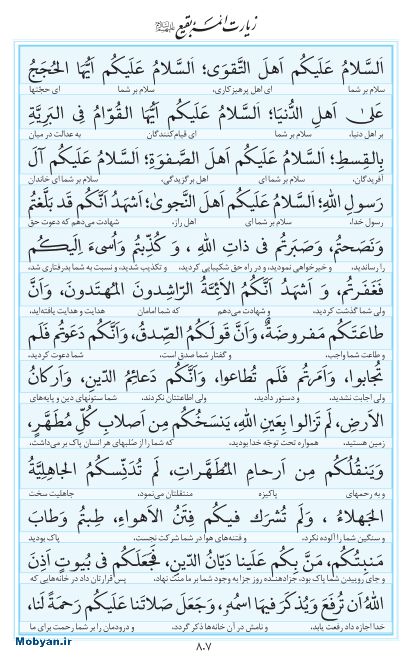 زیارت ائمه بقیع علیهم السلام
اَلسَّلامُ عَلَیکُم اَهلَ التَّقوَی؛ اَلسَّلامُ عَلَیکُم اَیُّهَا الحُجَجُ
سلام بر شما ای اهل پرهیزکاری، سلام بر شما ای حجتها
عَلیٰ اَهلِ الدُّنیَا؛ اَلسَّلامُ عَلَیکُم اَیُّهَا القُوّامُ فِی البَرِیَّةِ
بر اهل دنیا، سلام بر شما ای قیام‌کنندگان به عدالت در میان
بِالقِسطِ؛ اَلسَّلامُ عَلَیکُم اَهلَ الصَّفوَةِ؛ اَلسَّلامُ عَلَیکُم آلَ
آفریدگان، سلام بر شما ای اهل برگزیدگی، سلام بر شما ای خاندان
رَسولِ اللهِ؛ اَلسَّلامُ عَلَیکُم اَهلَ النَّجویٰ؛ اَشهَدُ اَنَّکُم قَد بَلَّغتُم
رسول خدا، سلام بر شما ای اهل راز، شهادت می‌دهم که دعوت حق
وَنَصَحتُم، وَصَبَرتُم فی ذاتِ اللهِ ، وَ کُذِّبتُم وَاُسیءَ اِلَیکُم
را رساندید، و خیرخواهی نمودید، و در راه حق شکیبایی کردید، و تکذیب شدید، و نسبت به شما بدرفتاری شد،
فَغَفَرتُم، وَ اَشهَدُ اَنَّکُمُ الاَئِمَّةُ الرّاشِدونَ المُهتَدونَ، وَاَنَّ
ولی شما گذشت کردید، و شهادت می‌دهم که شما امامان هدایت و هدایت یافته‌اید،
طاعَتَکُم مَفروضَةٌ، وَاَنَّ قَولَکُمُ الصِّدقُ، وَاَنَّکُم دَعَوتُم فَلَم
و طاعت شما واجب، و گفتار شما صدق است، شما دعوت کردید
تُجابوا، وَاَمَرتُم فَلَم تُطاعوا، وَاَنَّکُم دَعائِمُ الدّینِ، وَاَرکانُ
ولی اجابت نشدید، و دستور دادید، ولی اطاعتتان نکردند، شما ستونهای دین و پایه‌های
الاَرضِ، لَم تَزالوا بِعَینِ اللهِ، یَنسَخُکُم مِن اَصلابِ کُلِّ مُطَهَّرٍ،
زمین هستید، همواره تحت توجّه خدا بودید، که شما را از صُلبهای هر انسان پاک بر می‌داشت،
وَیَنقُلُکُم مِن اَرحامِ المُطَهَّراتِ، لَم تُدَنِّسکُمُ الجاهِلِیَّةُ
و به رحمهای پاکیزه منتقلتان می‌نمود، جاهلیت سخت
الجَهلاءُ ، وَلَم تُشرَک فیکُم فِتَنُ الاَهواءِ، طِبتُم وَطابَ
و سنگین شما را آلوده نکرد، و فتنه‌های هوا در شما شرکت نجست، پاک بودید
مَنبِتُکُم، مَنَّ بِکُم عَلَینا دَیّانُ الدّینِ، فَجَعَلَکُم فی بُیوتٍ اَذِنَ
و جای روییدن شما پاک بود، جزادهنده روز جزا به وجود شما بر ما منّت نهاد، پس قرارتان داد در خانه‌هایی که
اللهُ اَن تُرفَعَ وَیُذکَرَ فیهَا اسمُهُ، وَجَعَلَ صَلاتَنا عَلَیکُم رَحمَةً لَنا،
خدا اجازه داد رفعت یابد، و نامش در آن خانه‌ها ذکر گردد، و درودمان را بر شما رحمت برای ما
۸۰۷
Mobyan.ir